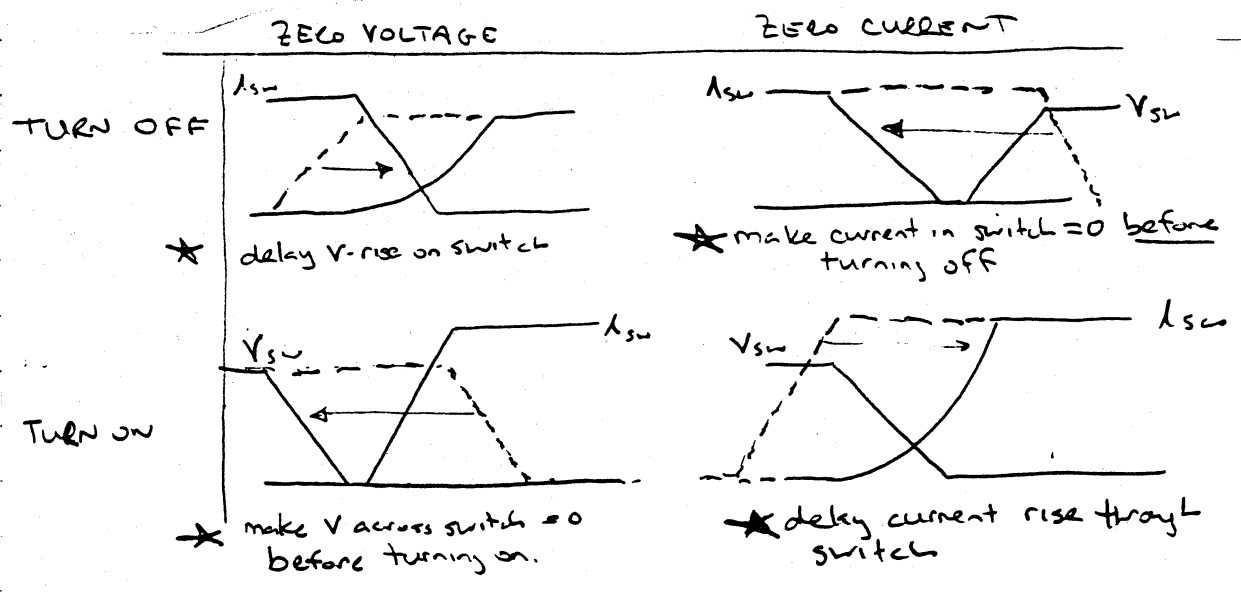 ZERO VOLTAGE
ZERO CURRENT
TURN OFF
isw
isw
Vsw
★ delay V-rise on switch
★ make current in switch = 0 before
turning off
TURN ON
Vsw
isw
Vsw
isw
★ make V across switch = 0
before turning on.
★ delay current rise through
switch